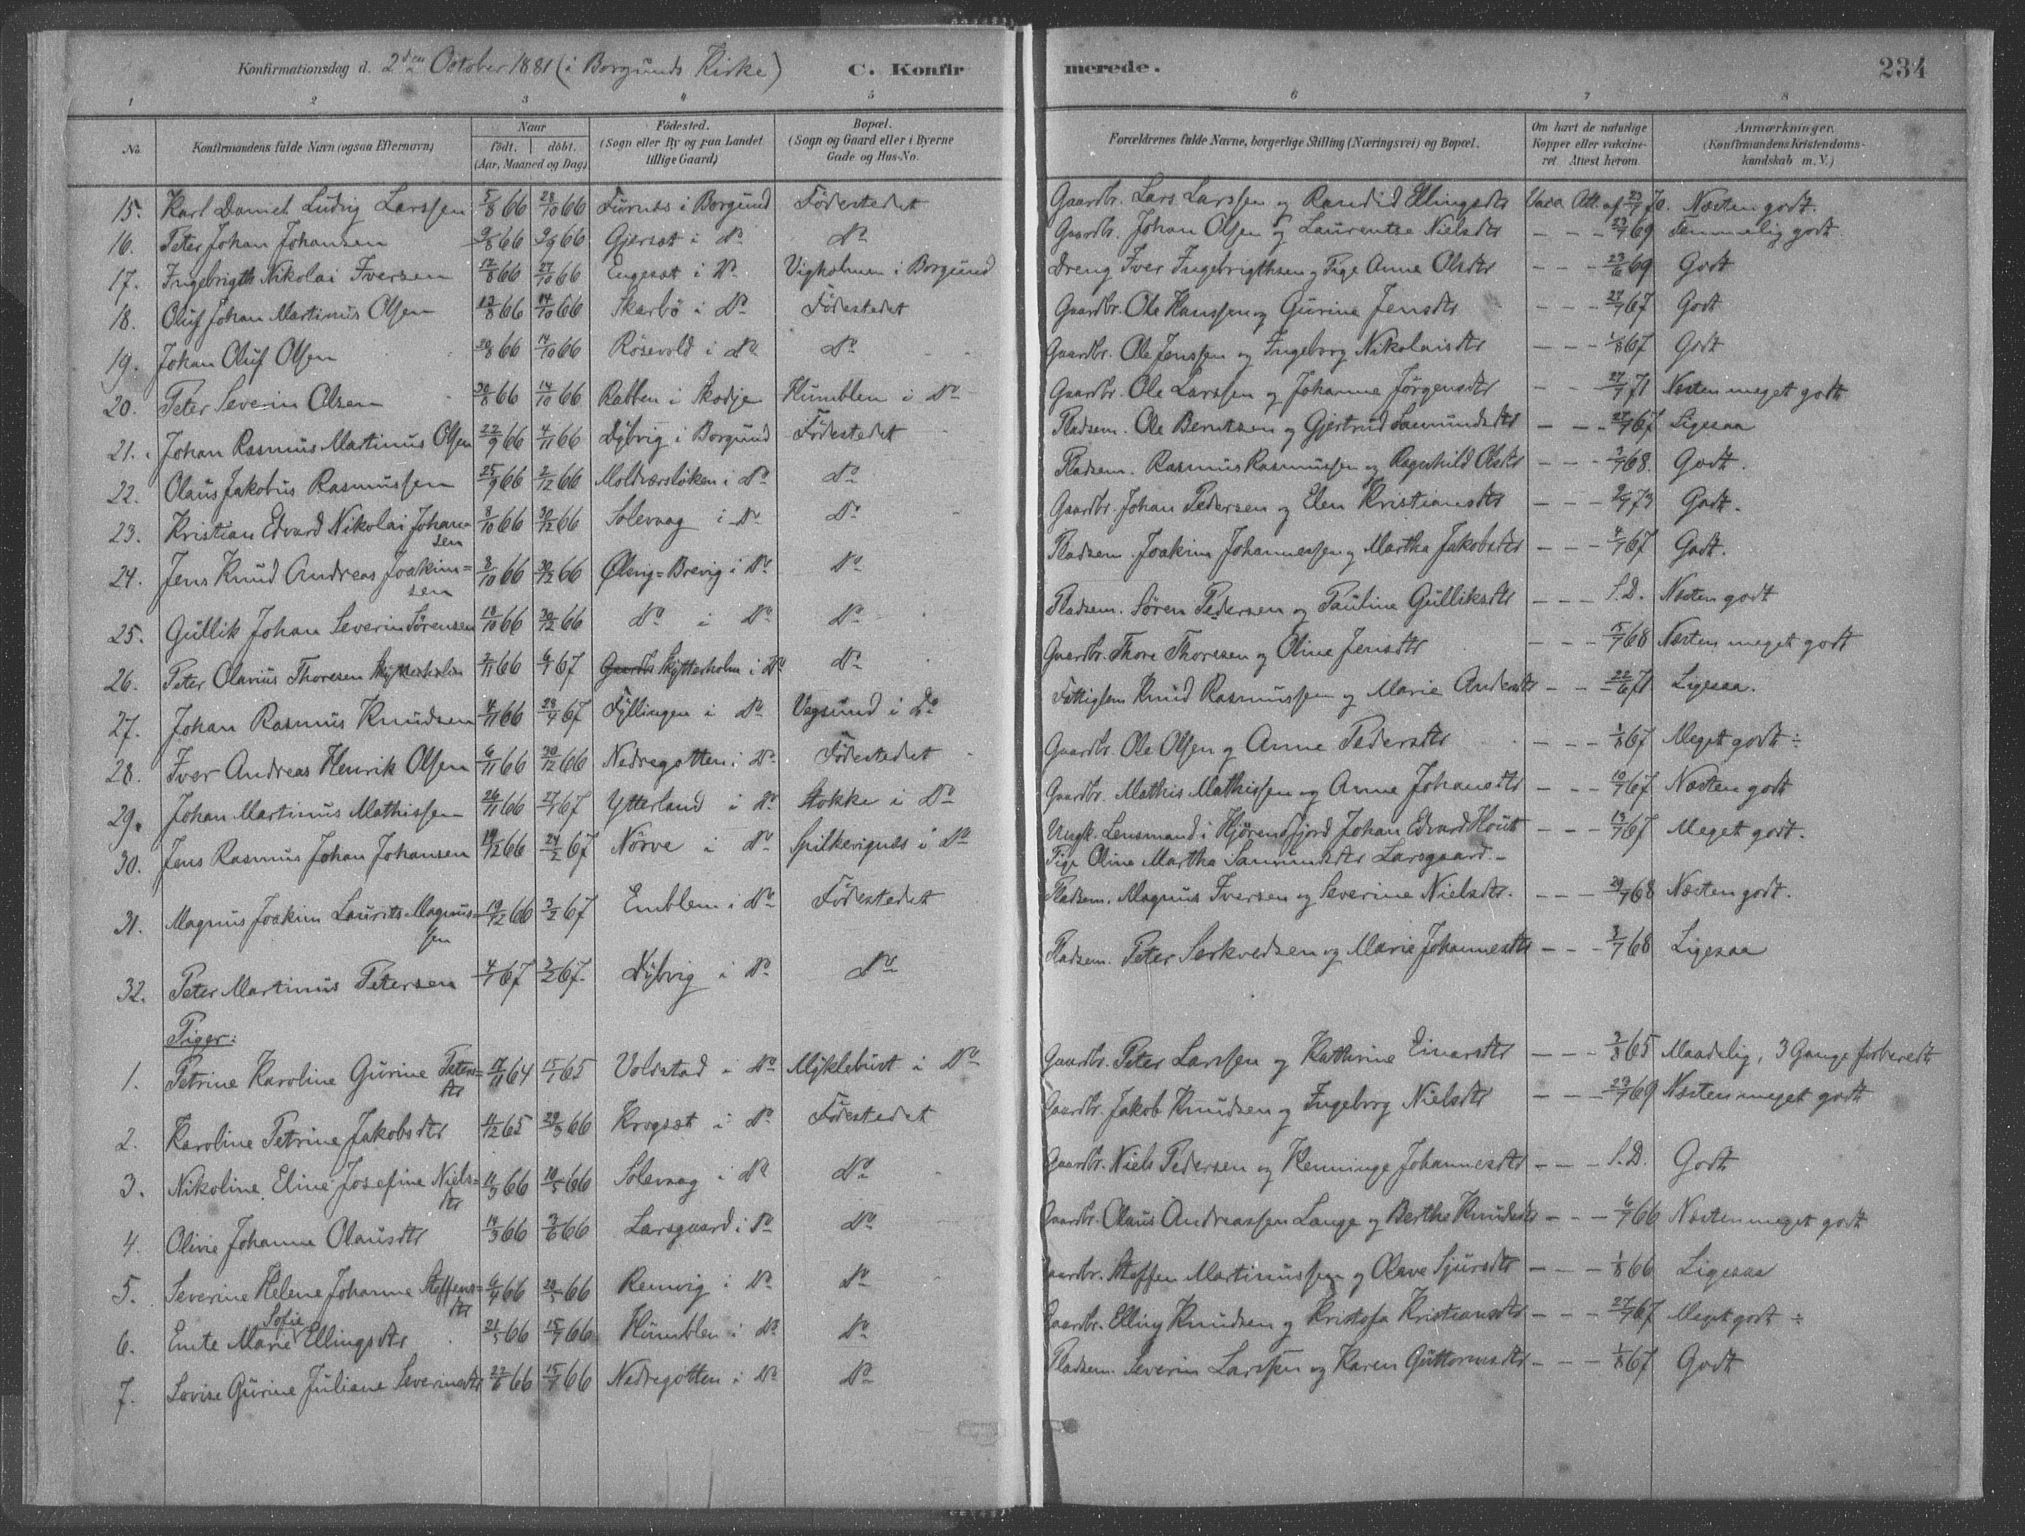 Konfirmationsdag d. 2den October 1881 (i Borgunds Kirke) C. Konfirmerede. 234
1 2 3 4 5 6 7 8
No Konfirmandens fulde Navn (ogsaa Efternavn) Naar født, døbt. (Aar, Maaned og Dag) Fødested. (Sogn eller By og paa Landet tillige Gaard) Bopæl. (Sogn og Gaard eller i Byerne Gade og Hus-No. Forældrenes fulde Navne, borgerlige Stilling (Næringsvei) og Bopæl. Om havt de naturlige Kopper eller vakcineret Attest herom. Anmærkninger. (Konfirmandens Kristendomskundskab m. V.)
15. Karl Daniel Ludvig Larssen 5/8 66 28/10 66 Furnes i Borgund Fødestedet Gaardbr. Lars Larssen og Randid Ellingsdtr Vacc. Att. af 23/7 70. Næsten godt.
16. Peter Johan Johansen 9/8 66 9/9 66 Gjersæt i Do Do Gaardbr. Johan Olsen og Laurentse Nielsdtr - - - 23/7 69 Temmelig godt
17. Ingebrigth Nikolai Iversen 12/8 66 27/10 66 Engesæt i Do Vigholmen i Borgund Dreng Iver Ingebrigthsen og Pige Anne Olsdtr - - - 23/6 69 Godt
18. Oluf Johan Martinus Olsen 13/8 66 14/10 66 Skarbø i Do Fødestedet Gaardbr. Ole Hanssen og Gurine Jensdtr - - - 27/7 67 Godt
19. Johan Oluf Olsen 20/8 66 14/10 66 Røsevold i Do Do Gaardbr. Ole Jenssen og Ingeborg Nikolaisdtr - - - 1/8 67 Godt
20. Peter Severin Olsen 30/8 66 14/10 66 Rabben i Skodje Humblen i Do Gaardbr. Ole Larssen og Johanne Jørgensdtr - - 27/7 71 Næsten meget godt
21. Johan Rasmus Martinus Olsen 22/9 66 4/11 66 Dybvig i Borgund Fødestedet Pladsem. Ole Berntsen og Gjertrud Samundsdtr - - - 27/7 67 Ligesaa
22. Olaus Jakobus Rasmussen 25/9 66 2/12 66 Moldværsløken i Do Do Pladsem. Rasmus Rasmussen og Ragnhild Olsdtr - - - 3/7 68. Godt.
23. Kristian Edvard Nikolai Johansen 3/10 66 30/12 66 Solevaag i Do Do Gaardbr. Johan Pedersen og Elen Kristiansdtr - - - 9/7 73 Godt.
24. Jens Knud Andreas Joakimsen 8/10 66 30/12 66 Øleng-Brevig i Do Do Pladsem. Joakim Johannessen og Martha Jakobsdtr - - - 4/7 67 Godt.
25. Gullik Johan Severin Sørensen 18/10 66 30/12 66 Do i Do Do Pladsem. Søren Pedersen og Pauline Gulliksdtr - - - S.D. Næsten godt
26. Peter Olavius Thoresen Skytterholm 2/11 66 6/1 67 Skytterholm i Do Do Gaardbr. Thore Thoresen og Oline Jensdtr - - - 5/7 68 Næsten meget godt
27. Johan Rasmus Knudsen 4/11 66 Fyllingen i Do Vegsund i Do Fattiglem Knud Rasmussen og Marie Andersdtr - - 22/6 71 Ligesaa.
28. Iver Andreas Henrik Olsen 6/11 66 30/12 66 Nedregotten i Do Fødestedet Gaardbr. Ole Olsen og Anne Pedersdtr - - - 1/8 67 Meget godt ÷
29. Johan Martinus Mathissen 26/11 66 67 Ytterland i Do Stokke i Do Gaardbr. Mathis Mathissen og Anne Johansdtr - - - 10/7 67 Næsten godt
30. Jens Rasmus Johan Johansen 19/12 66 24/2 67 Nørve i Do Spilkevignæs i Do Ungk. Lensmand i Hjørendfjord Johan Edvard Houth - - - 13/7 67 Meget godt.
Pige Oline Martha Samundsdtr Larsgaard.
31. Magnus Joakim Laurits Magnussen 19/12 66 3/2 67 Emblem i Do Fødestedet Pladsem. Magnus Iversen og Severine Nielsdtr. - - - 29/7 68 Næsten godt.
32. Peter Martinus Petersen 4/1 67 3/2 67. Dybvig i Do Do Pladsem. Peter Serkvedsen og Marie Johannesdtr - - - 3/7 68 Ligesaa
Piger:
1. Petrine Karoline Gurine Petersdtr 64 15/1 65 Volsstad i Do Myklebust i Do Gaardbr. Peter Larssen og Kathrine Einarsdtr - - - 3/8 65 Maadelig, 3 Gange forberedt
2. Karoline Petrine Jakobsdtr 11/12 65 66 Krogsæt i Do Fødestedet Gaardbr. Jakob Knudsen og Ingeborg Nielsdtr - - - 23/7 69 Næsten meget godt
3. Nikoline Eline Josefine Nielsdtr 11/3 66 10/5 66 Solevaag i Do Do Gaardbr. Niels Pedersen og Henninge Johannesdtr - - - S.D. Godt
4. Olivie Johanne Olausdtr 14/3 66 3/6 66 Larsgaard i Do Do Gaardbr. Olaus Andreassen Lange og Berthe Knudsdtr - - - 6/7 66 Næsten meget godt
5. Severine Helene Johanne Steffensdtr 6/4 66 66 Remvig i Do Do Gaardbr. Steffen Martinussen og Olave Sjursdtr - - - 1/8 66 Ligesaa
6. Ente Marie Sofie Ellingsdtr 21/5 66 15/7 66 Humblen i Do Do Gaardbr. Elling Knudsen og Kristofa Kristiansdtr - - - 27/7 67 Meget godt ÷
7. Lovise Gurine Juliane Severinsdtr 22/6 66 15/7 66 Nedregotten i Do Do Pladsem. Severin Larssen og Karen Guttormsdtr - - - 1/8 67 Godt